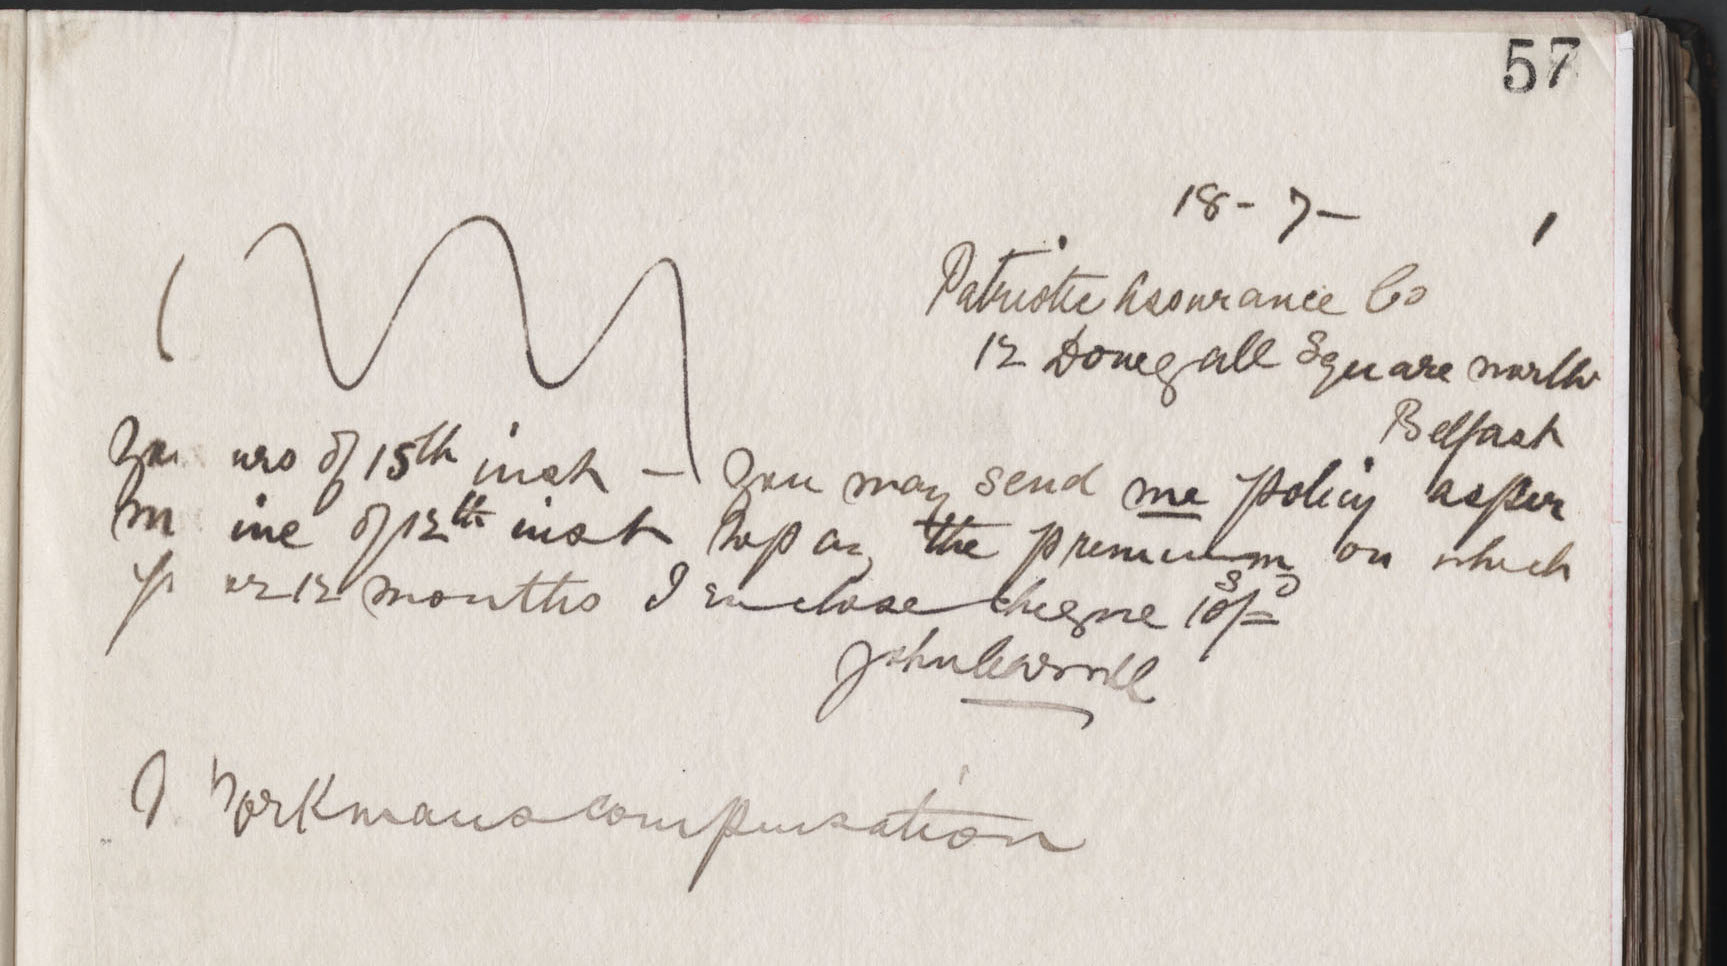 57
18 - 7 -
Patriotic Assurance Co
12 Donegall Square north
Belfast
You urs of 15th inst - You may send me policy as per
m ine of 12th inst to pay the premium on which
p er 12 months I enclose cheque 10s/=
John
Workmans compensation